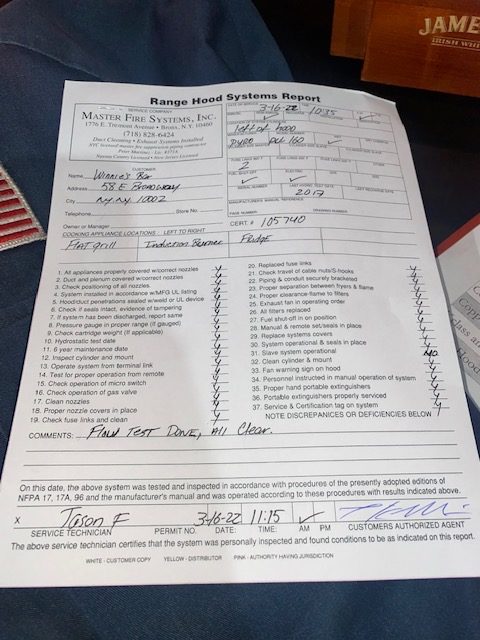 JAME
IRISH WHI
Range Hood Systems Report
SERVICE COMPANY
MASTER FIRE SYSTEMS, INC.
1776 E. Tremont Avenue • Bronx, N.Y. 10460
(718) 828-6424
Duct Cleaning • Exhaust Systems Installed
NYC licensed master fire suppression piping contractor
Peter Martini - Lic. #371A
Nassau County Licensed • New Jersey Licensed
DATE OF SERVICE 3-16-22 10:35
left of hood
pyro pcl 160
FUSE LINKS
2
FUEL SHUT-OFF ELECTRIC GAS SIZE
SERIAL NUMBER LAST HYDRO TEST DATE LAST RECHARGE DATE
2017
MANUFACTURER'S MANUAL REFERENCE
PAGE NUMBER DRAWING NUMBER
CERT. # 105740
CUSTOMER
Name Winnie's Bar
Address 58 E Broadway
City N.Y. N.Y. 10002
Telephone Store No.
Owner or Manager
COOKING APPLIANCE LOCATIONS - LEFT TO RIGHT
Flat grill Induction Burner Fridge
1. All appliances properly covered w/correct nozzles Y
2. Duct and plenum covered w/correct nozzles Y
3. Check positioning of all nozzles Y
4. System installed in accordance w/MFG UL listing Y
5. Hood/duct penetrations sealed w/weld or UL device Y
6. Check if seals intact, evidence of tampering Y
7. If system has been discharged, report same Y
8. Pressure gauge in proper range (If gauged) Y
9. Check cartridge weight (If applicable) Y
10. Hydrostatic test date Y
11. 6 year maintenance date Y
12. Inspect cylinder and mount Y
13. Operate system from terminal link Y
14. Test for proper operation from remote Y
15. Check operation of micro switch Y
16. Check operation of gas valve Y
17. Clean nozzles Y
18. Proper nozzle covers in place Y
19. Check fuse links and clean Y
20. Replaced fuse links Y
21. Check travel of cable nuts/S-hooks Y
22. Piping & conduit securely bracketed Y
23. Proper separation between fryers & flame Y
24. Proper clearance-flame to filters Y
25. Exhaust fan in operating order Y
26. All filters replaced Y
27. Fuel shut-off in on position Y
28. Manual & remote set/seals in place Y
29. Replace systems covers Y
30. System operational & seals in place Y
31. Slave system operational NO
32. Clean cylinder & mount Y
33. Fan warning sign on hood Y
34. Personnel instructed in manual operation of system Y
35. Proper hand portable extinguishers Y
36. Portable extinguishers properly serviced Y
37. Service & Certification tag on system Y
NOTE DISCREPANCIES OR DEFICIENCIES BELOW
COMMENTS: Field TEST DONE, All Clear.
On this date, the above system was tested and inspected in accordance with procedures of the presently adopted editions of
NFPA 17, 17A, 96 and the manufacturer's manual and was operated according to these procedures with results indicated above.
X Jason F 3-16-22 11:15
SERVICE TECHNICIAN PERMIT NO. DATE: TIME: AM PM CUSTOMERS AUTHORIZED AGENT
The above service technician certifies that the system was personally inspected and found conditions to be as indicated on this report.
WHITE - CUSTOMER COPY YELLOW - DISTRIBUTOR PINK - AUTHORITY HAVING JURISDICTION